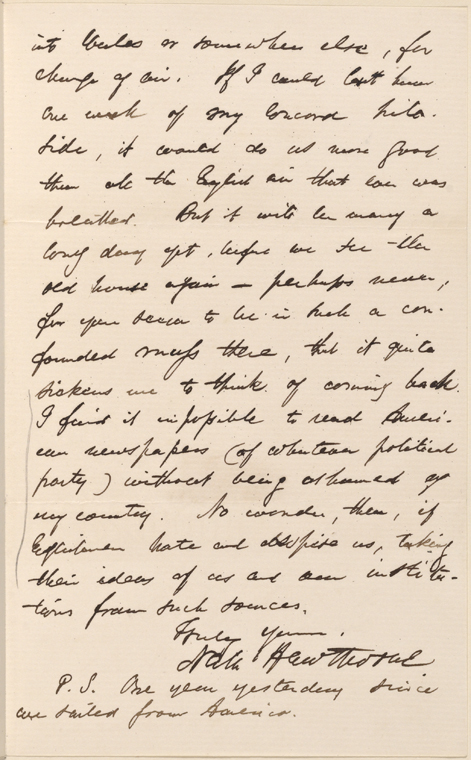 into Wales or somewhere else, for
change of air. If I could but have
one week of my Concord hill-
side, it would do us more good
than all the English air that ever was
breathed. But it will be many a
long day yet, before we see the
old house again — perhaps never;
for you seem to be in such a con-
founded muss there, that it quite
sickens me to think of coming back.
I find it impossible to read Ameri-
can newspapers (of whatever political
party) without being ashamed of
my country. No wonder, then, if
Englishmen hate and despise us, taking
their ideas of us and our institu-
tions from such sources.
Truly yours,
Nath Hawthorne
P.S. One year yesterday since
we sailed from America.